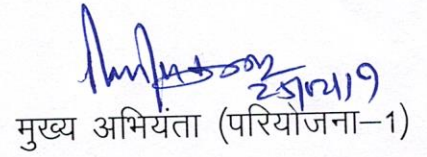 मुख्य अभियंता (परियोजना–1)